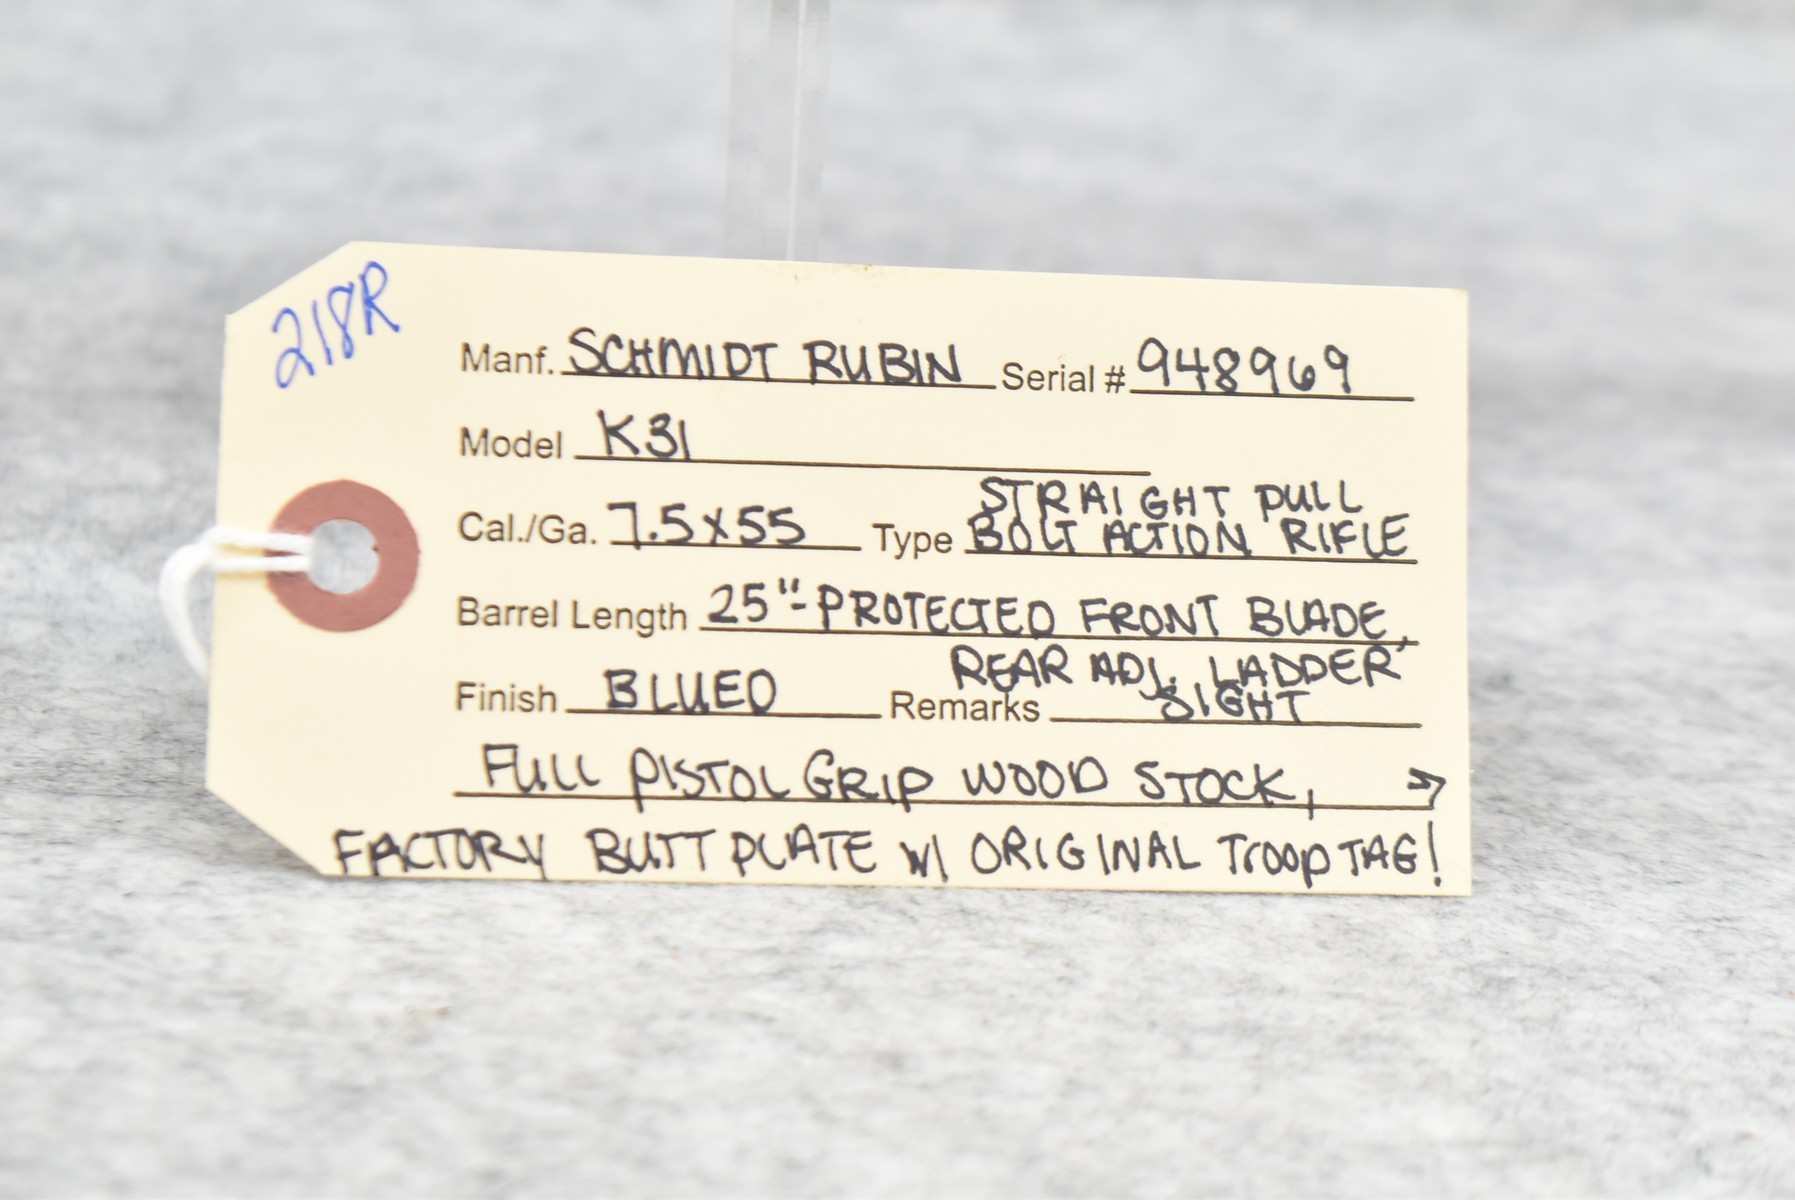 218R
Manf. SCHMIDT RUBIN Serial # 948969
Model K31
STRAIGHT PULL
Cal./Ga. 7.5x55 Type BOLT ACTION RIFLE
Barrel Length 25"-PROTECTED FRONT BLADE,
REAR ADJ. LADDER
Finish BLUED Remarks SIGHT
FULL PISTOL GRIP WOOD STOCK, →
FACTORY BUTT PLATE W/ ORIGINAL TROOP TAG!